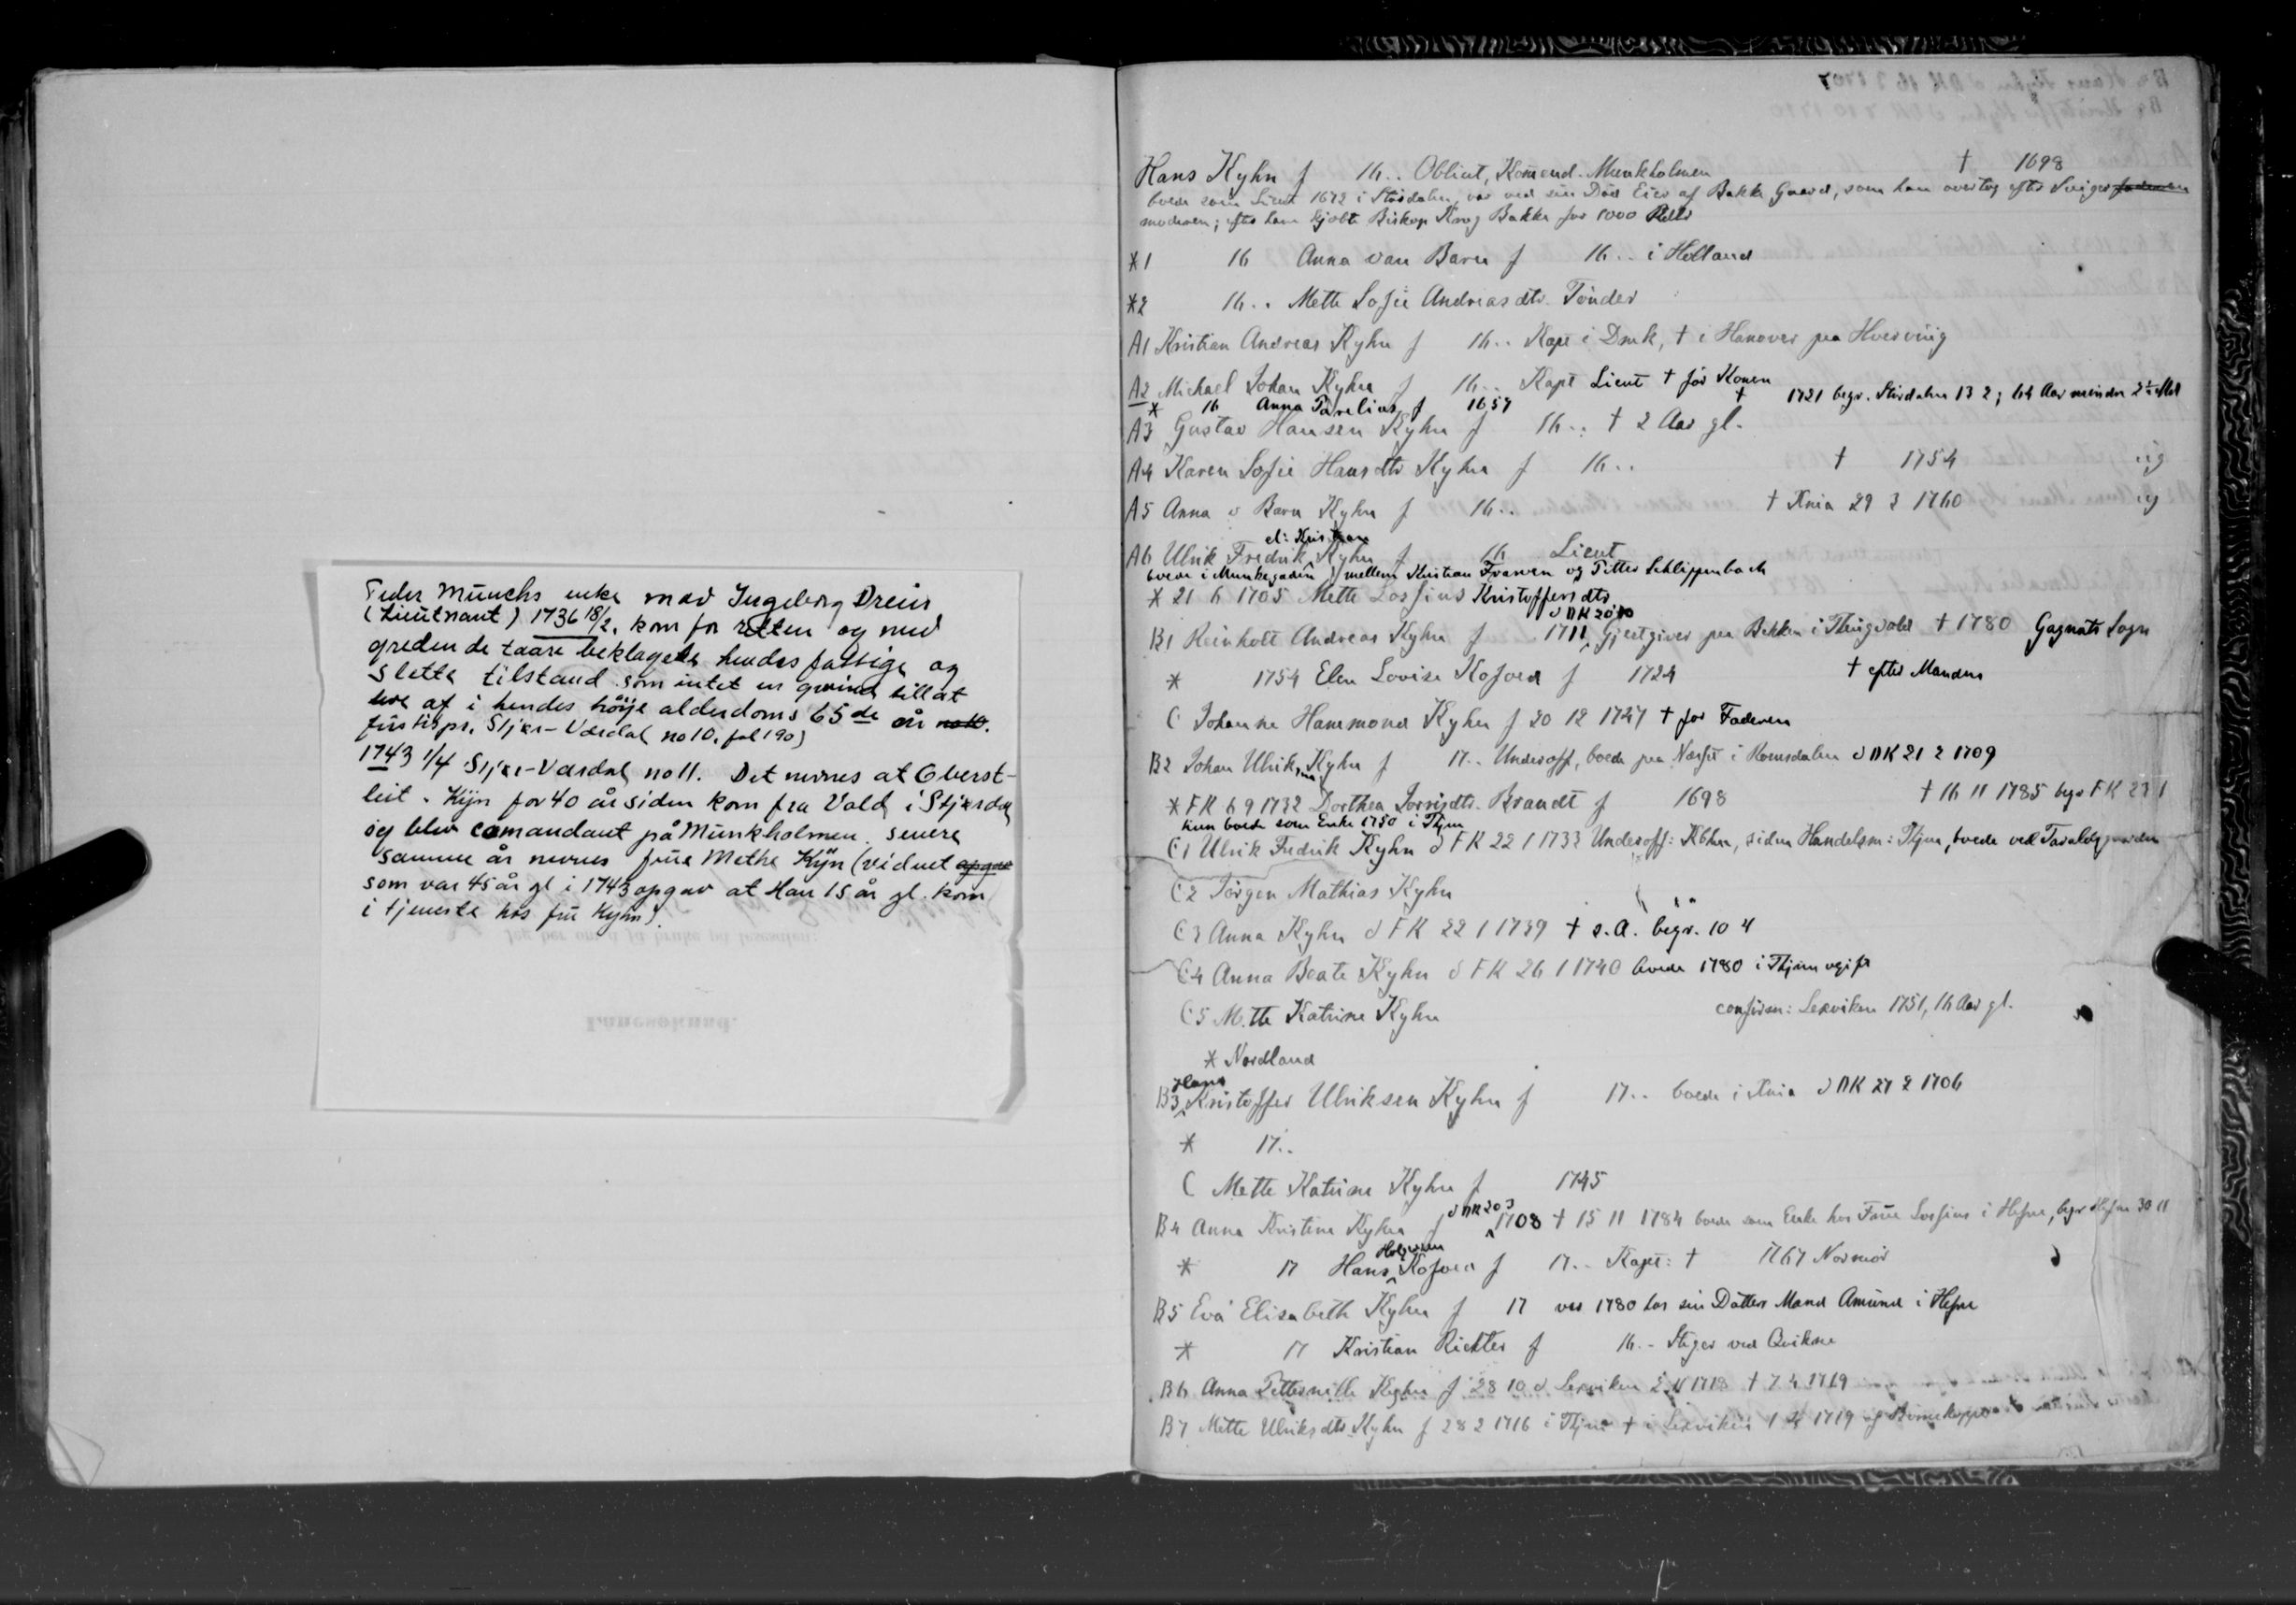 Peder Münchs enke mad Ingeborg Dreiis
(Lieutnant) 1736 18/2, kom for retten og med
gredende taare beklagede hendes fattige og
slette tilstand som intet en qvind till at
leve af i hendes höije alderdoms 65de år
Justispr. Stjør-Værdal no 10. fol 190)
1743 1/4 Stjør-Værdal no 11. Det nævnes at Oberst-
leit. Kijn for 40 år siden kom fra Vold i Stjørdal
og blev comandant på Munkholmen. senere
samme år nævnes frue Methe Kijn (vidnet opgav
som var 45 år gl i 1743 opgav at Han 15 år gl. kom
i tjeneste hos frü Kyhn).
Jeg ber om å få bruke på lesesalen:
Lånesøknad.
Hans Kyhn f 16.. Obliut, Komend. Munkholmen † 1698
boede som Lieut 1672 i Stördalen, var ved sin Död Eier af Bakke Gaard, som han overtog efter Svigerfaderen
moderen; efter ham kjöbte Biskop Krog Bakke for 1000 Rdlr
* 1 16 Anna van Baru f 16.. i Holland
* 2 16.. Mette Sofie Andreasdtr Tönder
A1 Kristian Andreas Kyhn f 16.. Kapt i Dmk, † i Hanover paa Hverving
A2 Michael Johan Kyhn f 16.. Kapt Lieut † för Konen
* 16 Anna Parelius f 1657 † 1721 begr. Stördalen 13 2; 64 Aar mindre 2½ Md
A3 Gustav Hansen Kyhn f 16.. † 2 Aar gl.
A4 Karen Sofie Hansdtr Kyhn f 16.. † 1754 ug
A5 Anna v Baru Kyhn f 16.. † Knia 29 3 1760 ug
el: Kristian
A6 Ulrik Fredrik Kyhn f 16 Lieut
boede i Munkegaden mellem Kristian Frauen og Petter Schlippenbach
* 21 6 1705 Mette Lossius Kristoffersdtr
d DK 20 10
B1 Reinholt Andreas Kyhn f 1711 Gjestgiver paa Bekken i Thingvold † 1780 Gagnats Sogn
* 1754 Elen Lovise Kofoed f 1724 † efter Manden
C Johanne Hammond Kyhn f 20 12 1727 † for Faderen
B2 Johan Ulriksen Kyhn f 17.. Underoff, boede paa Næsset i Romsdalen d DK 21 2 1709
* FK 6 9 1732 Dorthea Brandt f 1698 † 16 11 1785 begr FK 23 1
hun boede som Enke 1780 i Thjm
C1 Ulrik Fredrik Kyhn d FK 22 1 1733 Underoff: Kbhn, siden Handelsm: Thjm, boede ved Taraldsgaarden
C2 Jörgen Mathias Kyhn
C3 Anna Kyhn d FK 22 1 1739 † s.A. begr. 10 4
C4 Anna Beate Kyhn d FK 26 1 1740 boede 1780 i Thjm ugift
C5 Mette Katrine Kyhn confirm: Lexviken 1751, 16 Aar gl.
* Nordland
Hans
B3 Kristoffer Ulriksen Kyhn f 17.. boede i Knia d DK 27 2 1706
* 17..
C Mette Katrine Kyhn f 1745
d DK 20 3
B4 Anna Kristine Kyhn f 1708 † 15 11 1784 boede som Enke hos Frue Lossius i Hefne, begr Hefne 30 11
* 17 Hans Kofoed f 17.. Kapt: † 1767 Normör
B5 Eva Elisabeth Kyhn f 17 var 1780 hos sin Datters Mand Amund i Hefne
* 17 Kristian Richter f 16.. Stiger ved Qvikne
B6 Anna Petternille Kyhn f 28 10 d Lexviken 2 11 1718 † 7 4 1719
B7 Mette Ulriksdtr Kyhn f 28 2 1716 i Thjm † i Lexviken 1 4 1719 af Börnekopper